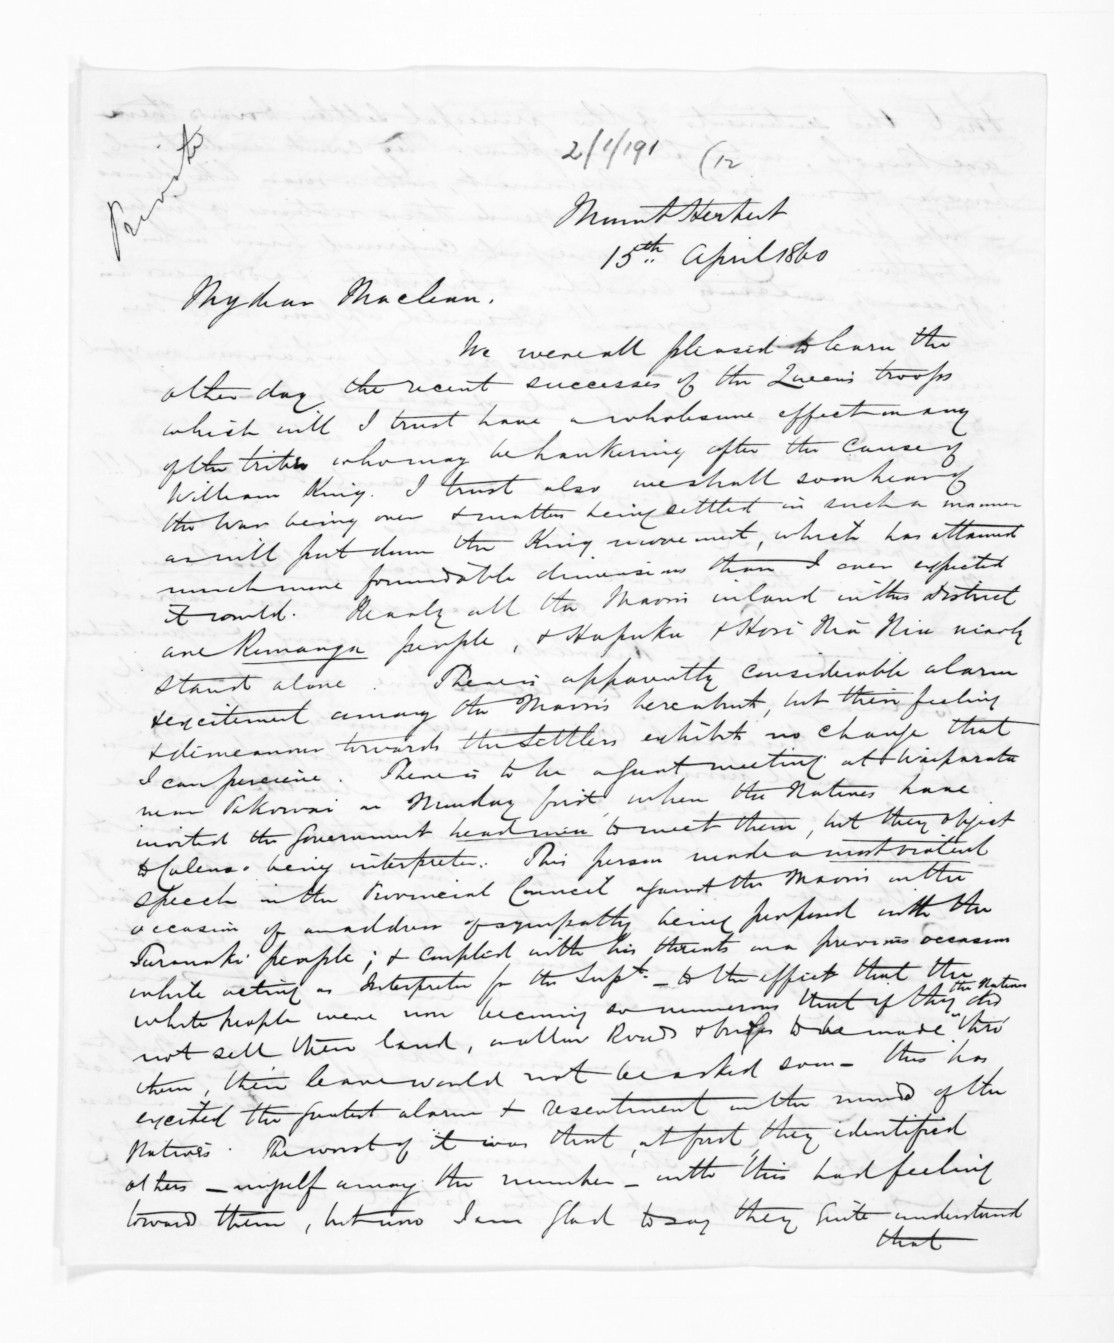 Private
2/1/191 (12
Mount Herbert
15th April 1860
My dear Maclean.
We were all pleased to learn the
other day the recent successes of the Queen's troops
which will I trust have a wholesome effect on any
of the tribes who may be hankering after the cause of
William King. I trust also we shall soon hear of
the War being over & matters being settled in such a manner
as will put down the King movement, which has attained
much more formidable dimensions than I ever expected
it would. Nearly all the Maoris inland in this District
are Runanga people, & Hapuku & Hori Nia Nia nearly
stand alone. There is apparently considerable alarm
& excitement among the Maoris hereabout, but their feeling
& dimeanour towards the Settlers exhibits no change that
I can perceive. There is to be a great meeting at Waiparata
near Pakowai on Monday first, when the Natives have
invited the Government head men to meet them, but they object
to Colenso being interpreter. This person made a most violent
speech in the Provincial Council against the Maoris on the
occasion of an address of sympathy being proposed with the
Taranaki people; & coupled with his threats on a previous occasion
while acting as Interpreter for the Supt. - to the effect that the
white people were now becoming so numerous that if they the Natives did
not sell their land, or allow Roads & bridges to be made "thro'
them, their leave would not be asked soon - this has
excited the greatest alarm & resentment in the minds of the
Natives. The worst of it was that, at first, they identified
others - myself among the number - with this bad feeling
toward them, but now I am glad to say they quite understand
that